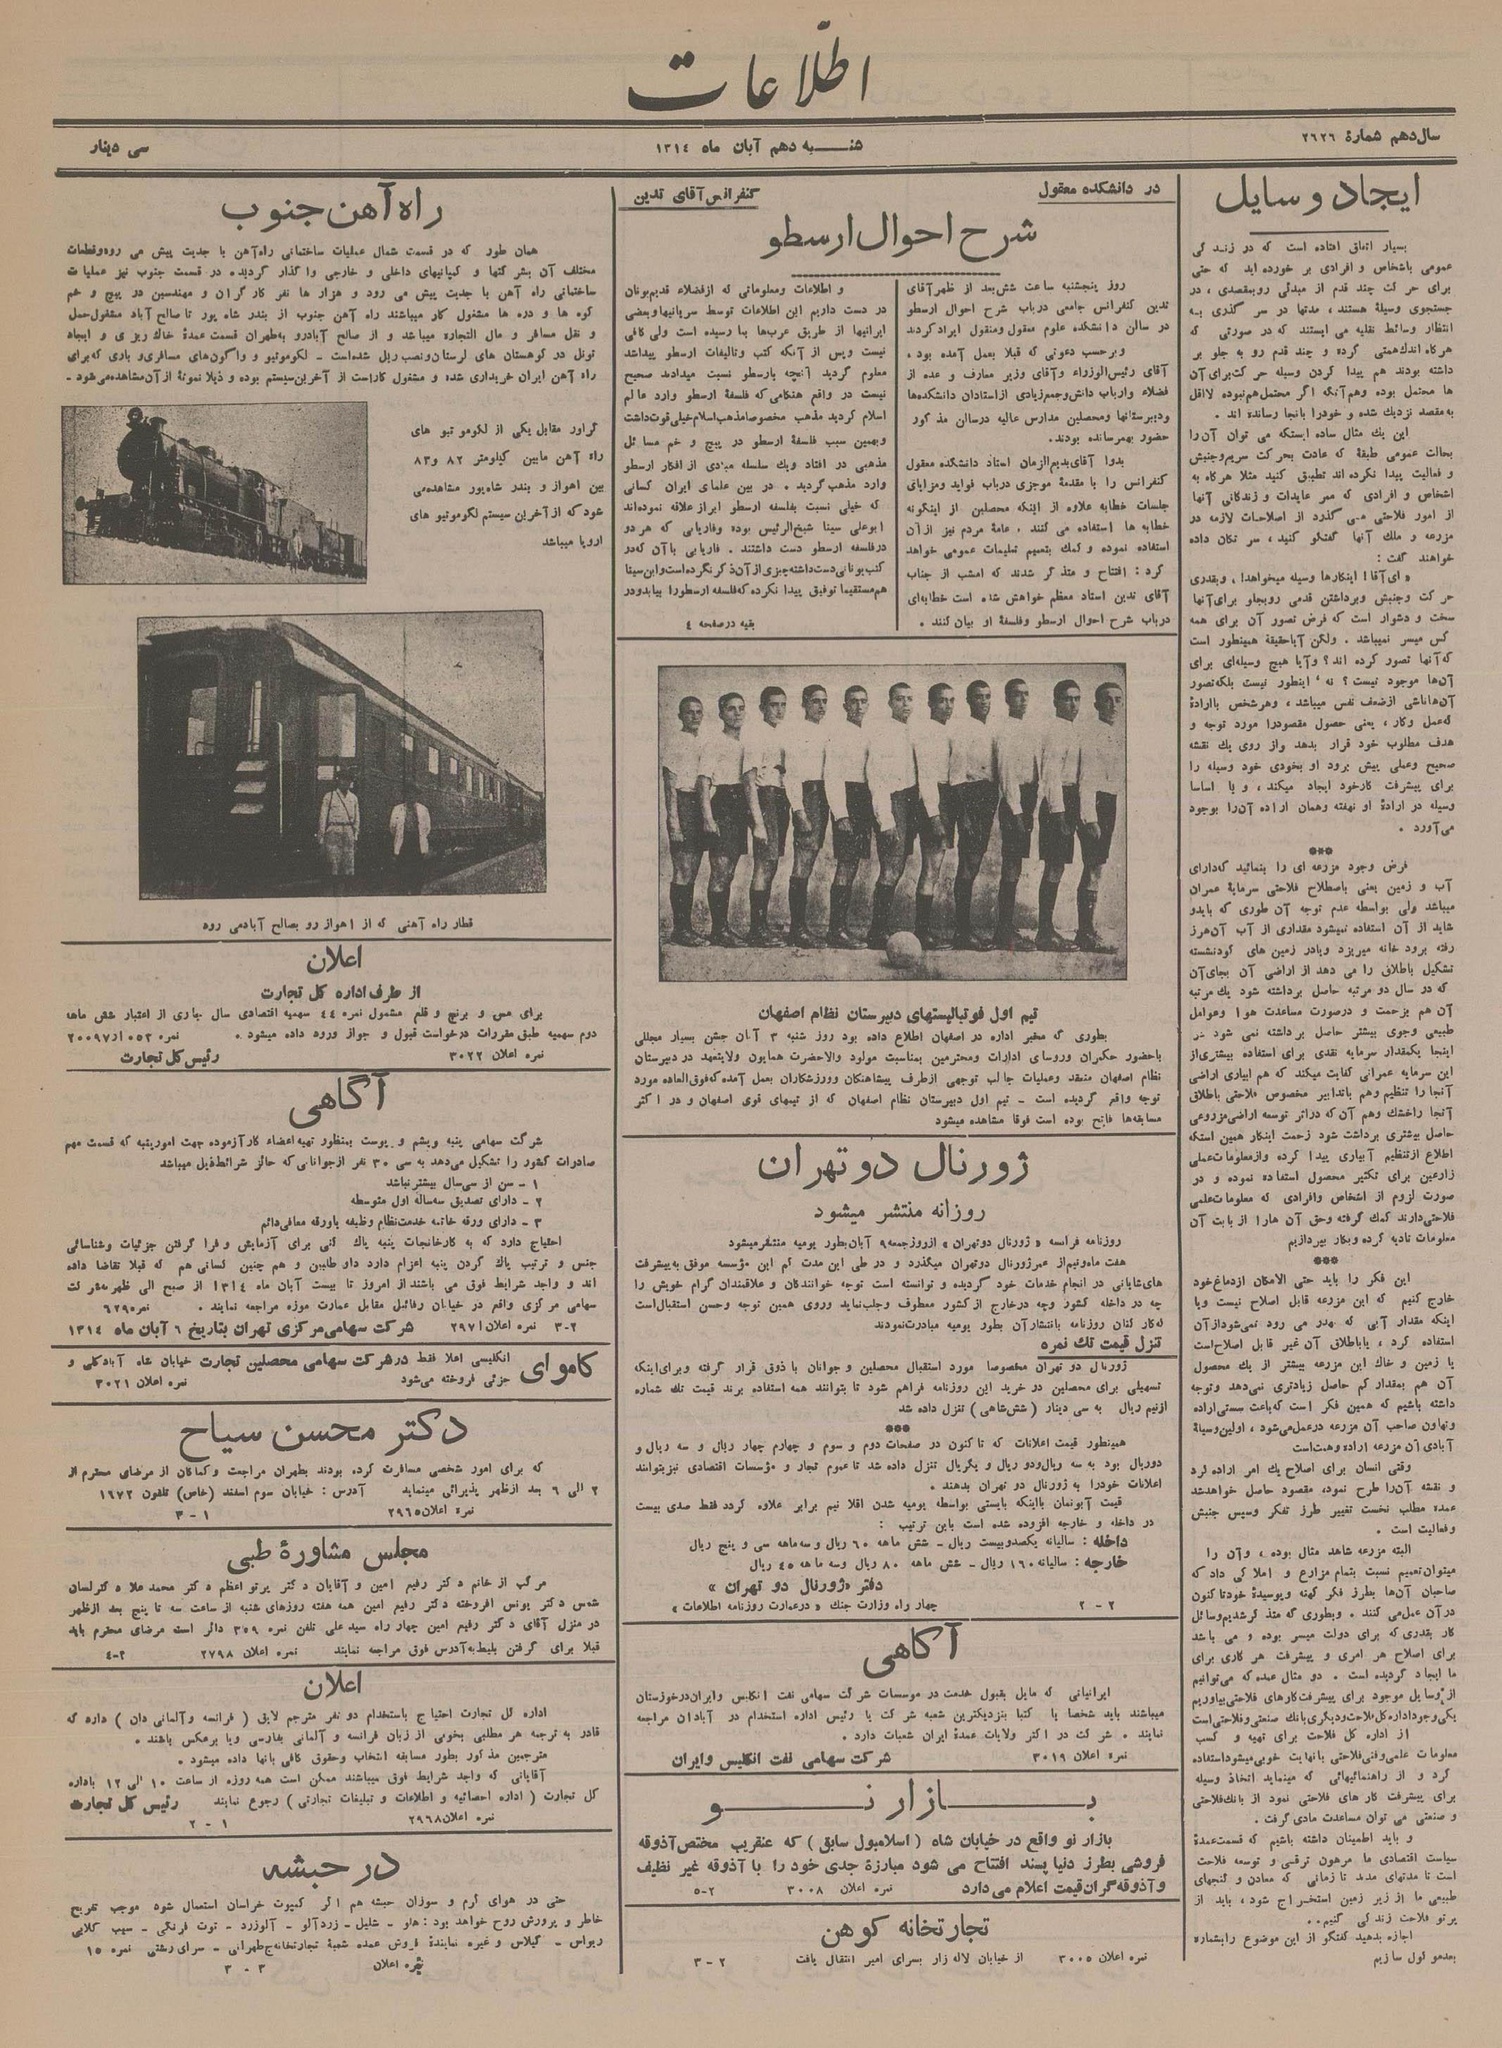 اطلاعات
سال دهم شمارهٔ ۲۶۲۶
شنبه دهم آبان ماه ۱۳۱۴
سی دینار
ایجاد وسایل
بسیار اتفاق افتاده است که در زندگی
عمومی باشخاص و افرادی بر خورده اید که حتی
برای حرکت چند قدم از مبدئی رو بمقصدی، در
جستجوی وسیلهٔ هستند، مدتها در سر گذری به
انتظار وسائط نقلیه می ایستند که در صورتی که
هرگاه اندك همتی کرده و چند قدم رو به جلو بر
داشته بودند هم پیدا کردن وسیله حرکت برای آن
ها محتمل بوده وهم آنکه اگر محتمل هم نبوده لااقل
به مقصد نزدیك شده و خودرا بانجا رسانده اند .
این یك مثال ساده ایستکه می توان آن را
بحالت عمومی طبقهٔ که عادت بحرکت سریع وجنبش
و فعالیت پیدا نکرده اند تطبیق کنید مثلا هرگاه به
اشخاص و افرادی که ممر عایدات و زندگانی آنها
از امور فلاحتی می گذرد از اصلاحات لازمه در
مزرعه و ملك آنها گفتگو کنید، سر تکان داده
خواهند گفت :
« ای آقا! اینکارها وسیله میخواهد! ، وبقدری
حرکت وجنبش وبرداشتن قدمی روبجلو برای آنها
سخت و دشوار است که فرض تصور آن برای همه
کس میسر نمیباشد . ولکن آیاحقیقة همینطور است
که آنها تصور کرده اند؟ وآیا هیچ وسیله‌ای برای
آن‌ها موجود نیست؟ نه ' اینطور نیست بلکه تصور
آن‌ها ناشی ازضعف نفس میباشد ، وهرشخص بااراده
که عمل وکار، یعنی حصول مقصودرا مورد توجه و
هدف مطلوب خود قرار بدهد واز روی یك نقشه
صحیح وعملی پیش برود او بخودی خود وسیله را
برای پیشرفت کارخود ایجاد میکند، و یا اساسا
وسیله در ارادهٔ او نهفته وهمان اراده آن‌را بوجود
می‌آورد .
***
فرض وجود مزرعه ای را بنمائید که دارای
آب و زمین یعنی باصطلاح فلاحتی سرمایهٔ عمران
میباشد ولی بواسطه عدم توجه آن طوری که بایدو
شاید از آن استفاده نمیشود مقداری از آب آن هرز
رفته برود خانه میریزد وبادر زمین های گودنشسته
تشکیل باطلاق را می دهد از اراضی آن بجای آن
که در سال دو مرتبه حاصل برداشته شود یك مرتبه
آن هم بزحمت و درصورت مساعدت هوا وعوامل
طبیعی وجوی بیشتر حاصل برداشته نمی شود در
اینجا یکمقدار سرمایه نقدی برای استفاده بیشتری از
این سرمایه عمرانی کفایت میکند که هم ابیاری اراضی
آنجا را تنظیم وهم باتدابیر مخصوص فلاحتی باطلاق
آنجا راخشك وهم آن که دراثر توسعه اراضی مزروعی
حاصل بیشتری برداشت شود زحمت اینکار همین استکه
اطلاع ازتنظیم آبیاری پیدا کرده وازمعلومات عملی
زارعین برای تکثیر محصول استفاده نموده و در
صورت لزوم از اشخاص وافرادی که معلومات علمی
فلاحتی دارند کمك گرفته وحق آن هارا از بابت آن
معلومات تادیه کرده وبکار بپردازیم
***
این فکر را باید حتی الامکان ازدماغ خود
خارج کنیم که این مزرعه قابل اصلاح نیست ویا
اینکه مقدار آبی که بهدر می رود نمی شود از آن
استفاده کرد ، یاباطلاق آن غیر قابل اصلاح است
یا زمین و خاك این مزرعه بیشتر از یك محصول
آن هم بمقدار کم حاصل زیادتری نمی‌دهد وتوجه
داشته باشیم که همین فکر است که باعث سستی اراده
وتهاون صاحب آن مزرعه درعمل می‌شود ، اولین وسیلهٔ
آبادی آن مزرعه اراده وهمت است
وقتی انسان برای اصلاح یك امر اراده کرد
و نقشه آن را طرح نمود، مقصود حاصل خواهد شد
عمده مطلب نخست تغییر طرز تفکر وسپس جنبش
وفعالیت است .
البته مزرعه شاهد مثال بوده ، وآن را
میتوان تعمیم نسبت بتمام مزارع و املاکی داد که
صاحبان آن‌ها بطرز فکر کهنه وپوسیدهٔ خود تا کنون
در آن عمل می کنند . وبطوری که متذکر شدیم وسائل
کار بقدری که برای دولت میسر بوده و می باشد
برای اصلاح هر امری و پیشرفت هر کاری برای
ما ایجاد گردیده است . دو مثال عمده که می‌توانیم
از وسایل موجود برای پیشرفت کارهای فلاحتی بیاوریم
یکی وجود اداره کل فلاحت ودیگری بانك صنعتی وفلاحتی است
از اداره کل فلاحت برای تهیه و کسب
معلومات علمی وفنی فلاحتی با نهایت خوبی میشود استفاده
کرد و از راهنمائیهائی که مینماید اتخاذ وسیله
برای پیشرفت کار های فلاحتی نمود از بانك فلاحتی
و صنعتی می توان مساعدت مادی گرفت .
و باید اطمینان داشته باشیم که قسمت عمدهٔ
سیاست اقتصادی ما مرهون ترقی و توسعه فلاحت
است تا مدتهای مدید تا زمانی که معادن و گنجهای
طبیعی ما از زیر زمین استخراج شود، باید از
پرتو فلاحت زندگی کنیم ..
اجازه بدهید گفتگو از این موضوع را بشماره
بعد موکول سازیم
در دانشکده معقول
کنفرانس آقای تدین
شرح احوال ارسطو
روز پنجشنبه ساعت شش بعد از ظهر آقای
تدین کنفرانس جامعی درباب شرح احوال ارسطو
در سالن دانشکده علوم معقول ومنقول ایراد کردند
وبرحسب دعوتی که قبلا بعمل آمده بود .
آقای رئیس الوزراء وآقای وزیر معارف و عده از
فضلاء وارباب دانش وجمع زیادی ازاستادان دانشکده‌ها
ودبیرستانها ومحصلین مدارس عالیه درسالن مذکور
حضور بهمرسانده بودند.
بدوا آقای بدیع الزمان استاد دانشکده معقول
کنفرانس را با مقدمهٔ موجزی درباب فواید ومزایای
جلسات خطابه علاوه از اینکه محصلین از اینگونه
خطابه ها استفاده می کنند . عامهٔ مردم نیز از آن
استفاده نموده و کمك بتعمیم تعلیمات عمومی خواهد
کرد : افتتاح و متذکر شدند که امشب از جناب
آقای تدین استاد معظم خواهش شده است خطابه‌ای
درباب شرح احوال ارسطو وفلسفهٔ او بیان کنند .
و اطلاعات ومعلوماتی که ازفضلاء قدیم یونان
در دست داریم این اطلاعات توسط سریانیها وبعضی
ایرانیها از طریق عرب‌ها بما رسیده است ولی کافی
نیست وپس از آنکه کتب وتالیفات ارسطو پیدا شد
معلوم گردید آنچه بارسطو نسبت میدادند صحیح
نیست در واقع هنگامی که فلسفهٔ ارسطو وارد عالم
اسلام گردید مذهب مخصوصا مذهب اسلام خیلی قوت داشت
وبهمین سبب فلسفهٔ ارسطو در پیچ و خم مسائل
مذهبی در افتاد ویك سلسله مبادی از افکار ارسطو
وارد مذهب گردید . در بین علمای ایران کسانی
که خیلی نسبت بفلسفه ارسطو ابراز علاقه نموده‌اند
ابوعلی سینا شیخ الرئیس بوده وفاریابی که هر دو
درفلسفه ارسطو دست داشتند . فاریابی با آن که در
کتب یونانی دست داشته چیزی از آن ذکر نکرده است وابن سینا
هم مستقیما توفیق پیدا نکرده که فلسفه ارسطورا بیابد ودر
بقیه درصفحه ٤
تیم اول فوتبالیستهای دبیرستان نظام اصفهان
بطوری که مخبر اداره در اصفهان اطلاع داده بود روز شنبه ۳ آبان جشن بسیار مجللی
باحضور حکمران وروسای ادارات ومحترمین بمناسبت مولود والاحضرت همایون ولایتعهد در دبیرستان
نظام اصفهان منعقد وعملیات جالب توجهی ازطرف پیشاهنگان وورزشکاران بعمل آمده که فوق العاده مورد
توجه واقع گردیده است - تیم اول دبیرستان نظام اصفهان که از تیمهای قوی اصفهان و در اکثر
مسابقه‌ها فاتح بوده است فوقا مشاهده میشود
ژورنال دو تهران
روزانه منتشر میشود
روزنامه فرانسه « ژورنال دوتهران » ازروزجمعه ۹ آبان بطور یومیه منتشر میشود
هفت ماه ونیم از عمر ژورنال دوتهران میگذرد و در طی این مدت کم این مؤسسه موفق به پیشرفت
های شایانی در انجام خدمات خود گردیده و توانسته است توجه خوانندگان و علاقمندان گرام خویش را
چه در داخله کشور وچه درخارج از کشور معطوف وجلب نماید وروی همین توجه وحسن استقبال است
که کارکنان روزنامه بانتشار آن بطور یومیه مبادرت نمودند
تنزل قیمت تك نمره
ژورنال دو تهران مخصوصا مورد استقبال محصلین و جوانان با ذوق قرار گرفته وبرای اینکه
تسهیلی برای محصلین در خرید این روزنامه فراهم شود تا بتوانند همه استفاده برند قیمت تك شماره
ازنیم ریال به سی دینار (شش شاهی) تنزل داده شد
***
همینطور قیمت اعلانات که تا کنون در صفحات دوم و سوم و چهارم چهار ریال و سه ریال و
دوریال بود به سه ریال ودو ریال و یکریال تنزل داده شد تا عموم تجار و مؤسسات اقتصادی نیز بتوانند
اعلانات خودرا به ژورنال دو تهران بدهند .
قیمت آبونمان با اینکه بایستی بواسطه یومیه شدن اقلا نیم برابر علاوه گردد فقط صدی بیست
در داخله و خارجه افزوده شده است باین ترتیب :
داخله : سالیانه یکصدوبیست ریال - شش ماهه ٦٠ ریال وسه ماهه سی و پنج ریال
خارجه : سالیانه ١٦٠ ریال - شش ماهه ٨٠ ریال وسه ماهه ٤٥ ریال
دفتر «ژورنال دو تهران »
۲ - ۲
چهار راه وزارت جنك « درعمارت روزنامه اطلاعات »
آگاهی
ایرانیانی که مایل بقبول خدمت در موسسات شرکت سهامی نفت انگلیس وایران درخوزستان
میباشند باید شخصا یا کتبا بنزدیکترین شعبه شرکت یا رئیس اداره استخدام در آبادان مراجعه
نمایند . شرکت در اکثر ولایات عمدهٔ ایران شعبات دارد .
نمره اعلان ۳۰۱۹
شرکت سهامی نفت انگلیس وایران
بازار نو
بازار نو واقع در خیابان شاه (اسلامبول سابق) که عنقریب مختص آذوقه
فروشی بطرز دنیا پسند افتتاح می شود مبارزهٔ جدی خود را با آذوقه غیر نظیف
و آذوقه گران قیمت اعلام می دارد
نمره اعلان ۳۰۰۸
۵-۲
تجارتخانه کوهن
نمره اعلان ۳۰۰۵
از خیابان لاله زار بسرای امیر انتقال یافت
۳-۲
راه آهن جنوب
همان طور که در قسمت شمال عملیات ساختمانی راه آهن با جدیت پیش می رود وقطعات
مختلف آن بشرکتها و کمپانیهای داخلی و خارجی واگذار گردیده در قسمت جنوب نیز عملیات
ساختمانی راه آهن با جدیت پیش می رود و هزار ها نفر کارگران و مهندسین در پیچ و خم
کوه ها و دره ها مشغول کار میباشند راه آهن جنوب از بندر شاه پور تا صالح آباد مشغول حمل
و نقل مسافر و مال التجاره میباشد و از صالح آباد رو به طهران قسمت عمدهٔ خاك ریزی و ایجاد
تونل در کوهستان های لرستان ونصب ریل شده است - لکوموتیو و واگون‌های مسافری و باری که برای
راه آهن ایران خریداری شده و مشغول کار است از آخرین سیستم بوده و ذیلا نمونهٔ از آن مشاهده می شود -
گراور مقابل یکی از لکوموتیو های
راه آهن مابین کیلومتر ٨٢ و ٨٣
بین اهواز و بندر شاهپور مشاهده می
شود که از آخرین سیستم لکوموتیو های
اروپا میباشد
قطار راه آهنی که از اهواز رو بصالح آباد می رود
اعلان
از طرف اداره کل تجارت
برای مس و برنج و قلم مشمول نمره ٤٤ سهمیه اقتصادی سال جاری از اعتبار شش ماهه
دوم سهمیه طبق مقررات درخواست قبول و جواز ورود داده میشود .
نمره اعلان ۳۰۲۲
رئیس کل تجارت
آگاهی
شرکت سهامی پنبه وپشم و پوست بمنظور تهیه اعضاء کار آزموده جهت امور پنبه که قسمت مهم
صادرات کشور را تشکیل می‌دهد به سی ۳۰ نفر ازجوانانی که حائز شرائط ذیل میباشد
۱ - سن از سی سال بیشتر نباشد
۲ - دارای تصدیق سه ساله اول متوسطه
۳ - دارای ورقه خاتمه خدمت نظام وظیفه یاورقه معافی دائم
احتیاج دارد که به کارخانجات پنبه پاك کنی برای آزمایش و فرا گرفتن جزئیات وشناسائی
جنس و ترتیب پاك کردن پنبه اعزام دارد داوطلبین و هم چنین کسانی هم که قبلا تقاضا داده
اند و واجد شرایط فوق می باشند از امروز تا بیست آبان ماه ۱۳۱۴ از صبح الی ظهر به شرکت
سهامی مرکزی واقع در خیابان رفائیل مقابل عمارت موزه مراجعه نمایند .
نمره ۶۲۹
۳-۲
نمره اعلان ۲۹۷۱
شرکت سهامی مرکزی تهران بتاریخ ٦ آبان ماه ۱۳۱٤
کاموای
انگلیسی اعلا فقط در شرکت سهامی محصلین تجارت خیابان شاه آباد کلی و
جزئی فروخته می‌شود
نمره اعلان ۳۰۲۱
دکتر محسن سیاح
که برای امور شخصی مسافرت کرده بودند بطهران مراجعت وکماکان از مرضای محترم از
۲ الی ٦ بعد ازظهر پذیرائی مینماید آدرس : خیابان سوم اسفند (خاص) تلفون ۱٦۷۲
نمره اعلان ۲۹٦٥
۳ - ۱
مجلس مشاورهٔ طبی
مرکب از خانم دکتر رفیع امین و آقایان دکتر پرتو اعظم دکتر محمد علا دکتر لسان
شمس دکتر یونس افروخته دکتر رفیع امین همه هفته روزهای شنبه از ساعت سه تا پنج بعد ازظهر
در منزل آقای دکتر رفیع امین چهار راه سید علی تلفن نمره ۳٥۹ دائر است مرضای محترم باید
قبلا برای گرفتن بلیط به آدرس فوق مراجعه نمایند
نمره اعلان ۲۷۹۸
٤-۲
اعلان
اداره کل تجارت احتیاج باستخدام دو نفر مترجم لایق ( فرانسه وآلمانی دان ) دارد که
قادر به ترجمه هر مطلبی بخوبی از زبان فرانسه و آلمانی بفارسی ویا برعکس باشند .
مترجمین مذکور بطور مسابقه انتخاب وحقوق کافی بانها داده میشود .
آقایانی که واجد شرایط فوق میباشند ممکن است همه روزه از ساعت ۱۰ الی ۱۲ باداره
کل تجارت ( اداره احصائیه و اطلاعات و تبلیغات تجارتی ) رجوع نمایند
رئیس کل تجارت
نمره اعلان ۲۹٦۸
۲ - ۱
در حبشه
حتی در هوای گرم و سوزان حبشه هم اگر کمپوت خراسان استعمال شود موجب تفریح
خاطر و پرورش روح خواهد بود : هلو - شلیل - زردآلو - آلوزرد - توت فرنگی - سیب گلابی
ریواس - گیلاس و غیره نمایندهٔ فروش عمده شعبهٔ تجارتخانه طهرانی - سرای رشتی نمره ۱٥
نمره اعلان
۳ - ۳